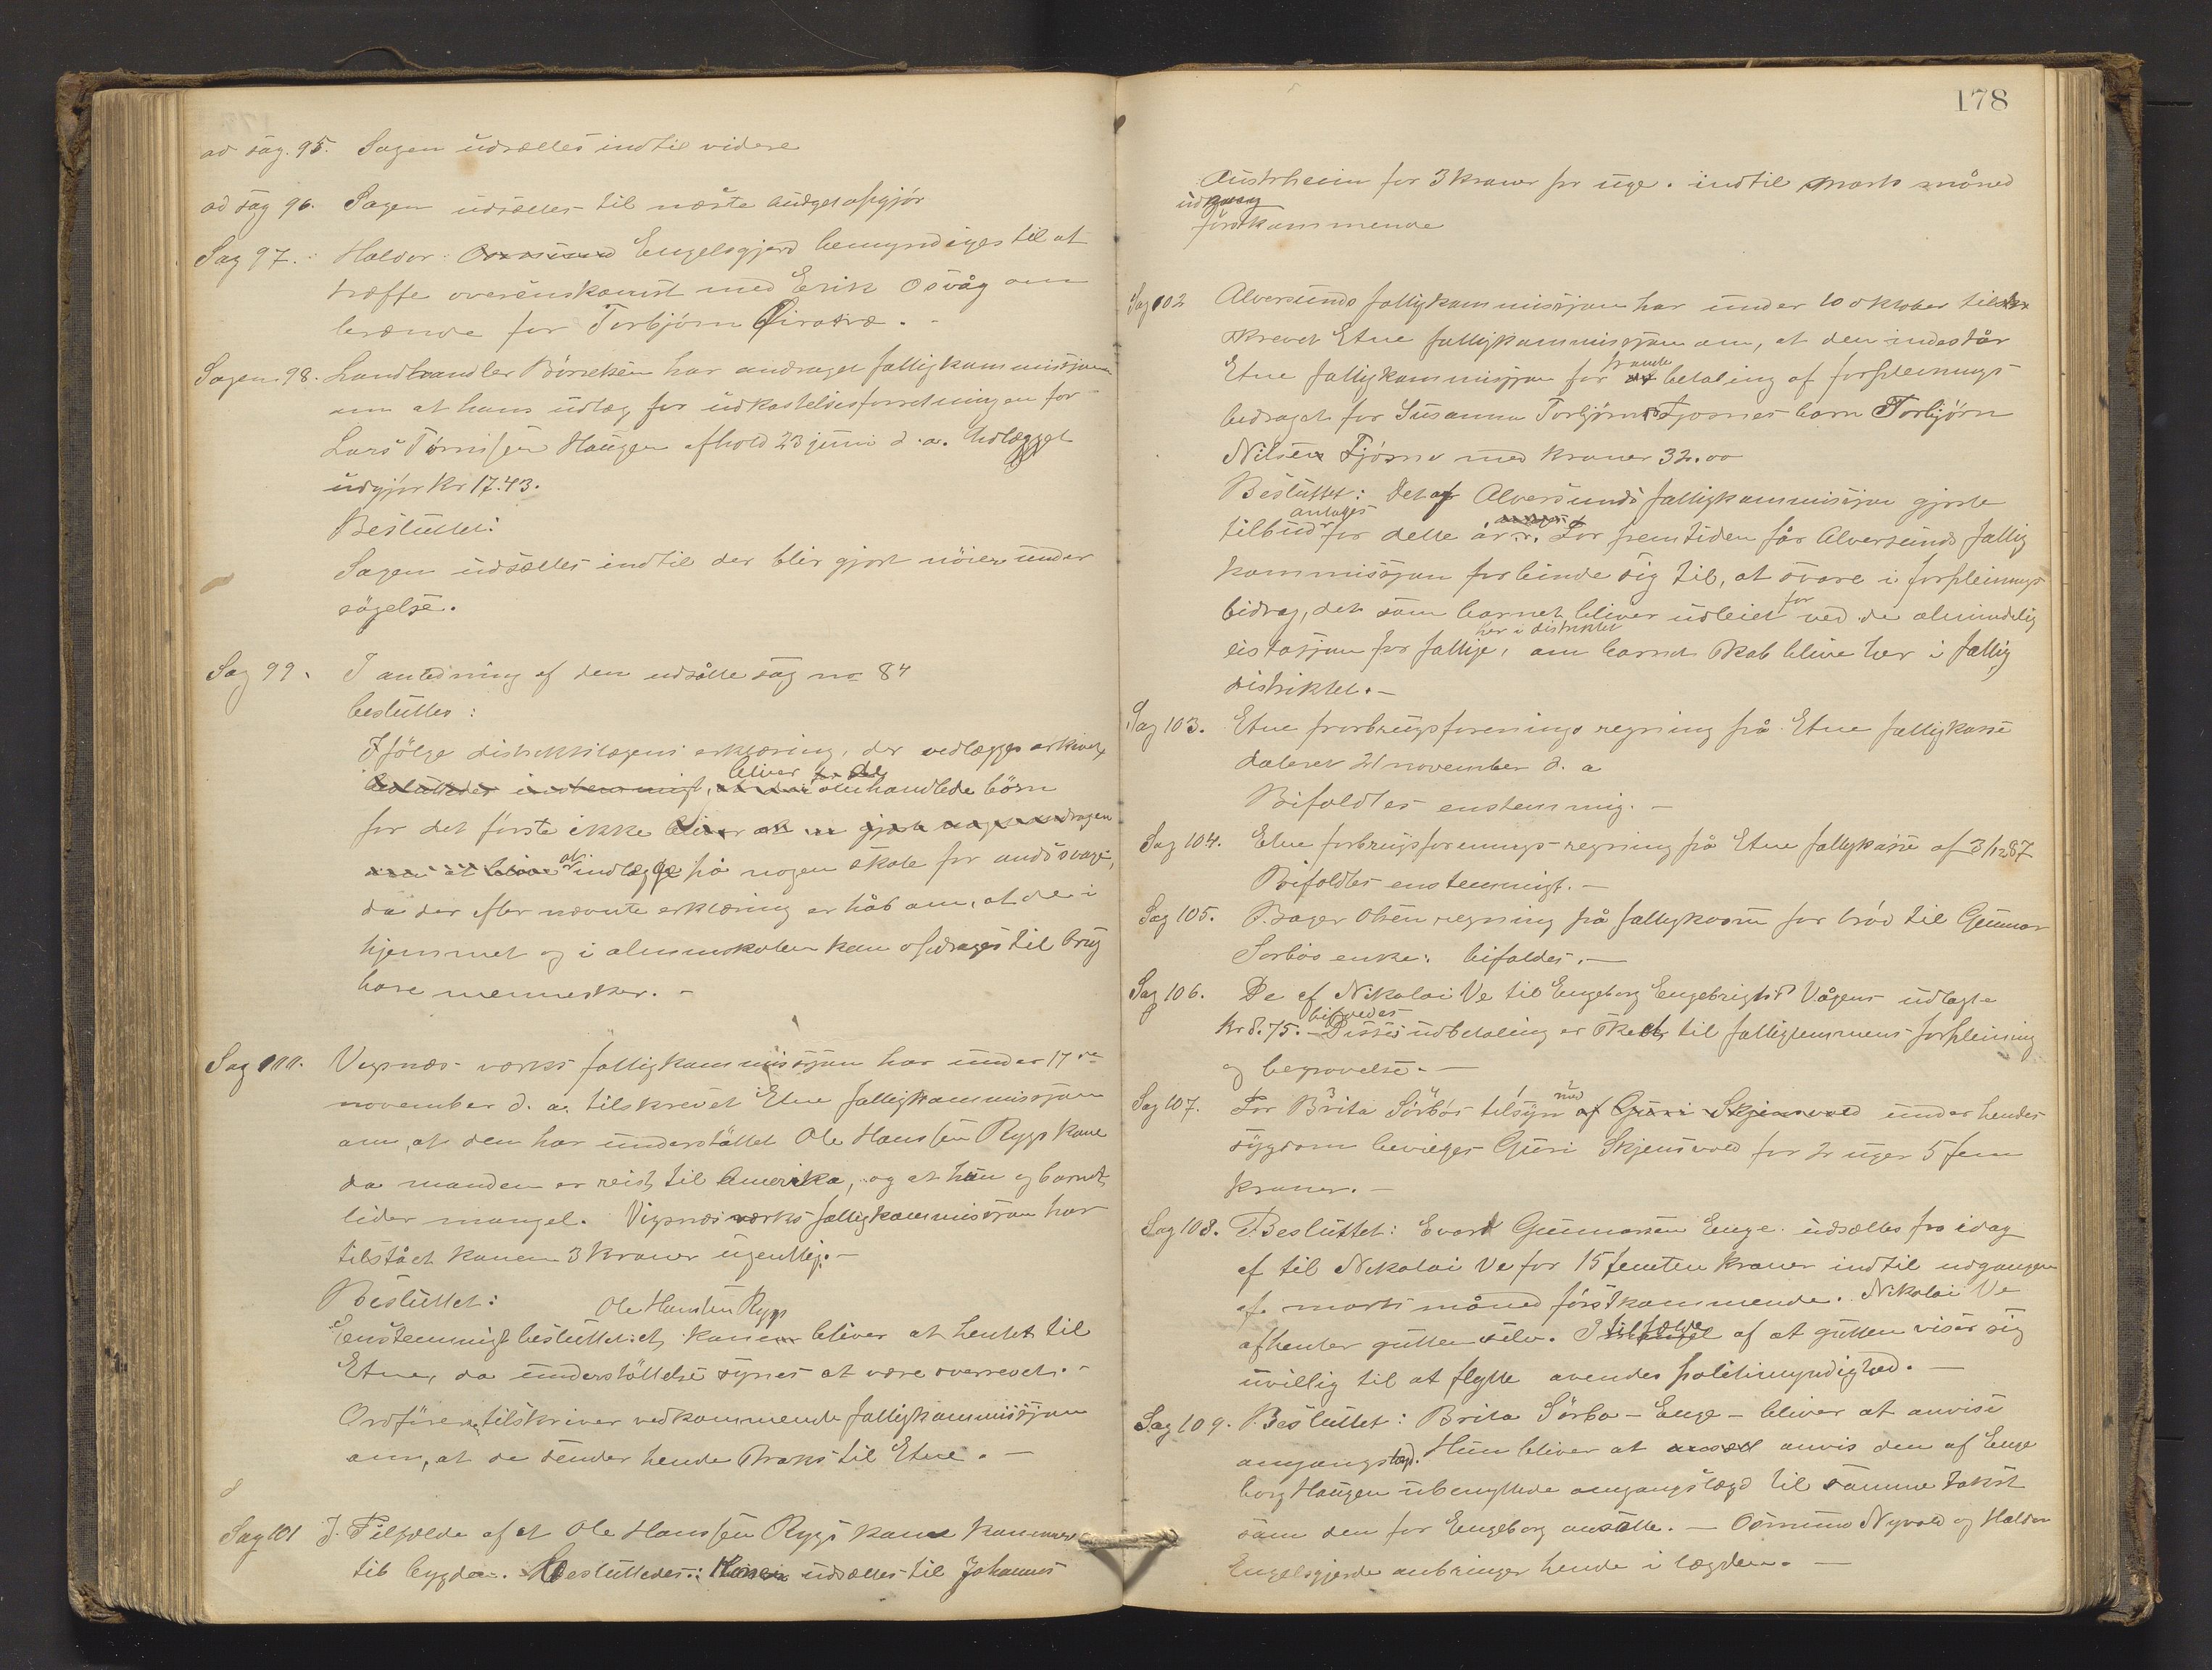 ad sag. 95. Sagen udsættes indtil videre
ad sag 96. Sagen udsættes til næste budgetopgjør
Sag 97. Haldor Engelsgjerd bemyndiges til at
træffe overenskomst med Erik Osvåg om
brænde for Torbjørn
Sagen 98. Landhandler Börretzen har andraget fattigkommissjonen
om at hans udlæg for udkastelsesforretningen for
Lars Haugen afhold 23 juni d. a. Udlægget
udgjør Kr 17.43.
Besluttet:
Sagen udsættes indtil der blir gjort nöiere under
sögelse.
Sag 99. I anledning af den udsatte sag no 84
besluttes:
Ifölge distriktslægens erklæring, der vedlægges arkivet,
bliver de
besluttedes enstemmigt, omhandlede börn
for det förste ikke
at indlægge på nogen skole for åndssvage,
da der efter nævnte erklæring er håb om, at de i
hjemmet og i almueskolen kan opdrages til brug
bare mennesker. -
Sag 100. Vigsnæs værks fattigkommissjon har under 17de
november d. a. tilskrevet Etne fattigkommissjon
om, at den har understöttet Ole Hanssen Rygs kone
da manden er reist til Amerika, og at hun og barnet
lider mangel. Vigsnæs værks fattigkommissjon har
tilstået konen 3 kroner ugentlig. -
Besluttet:
Ole Hanssen Rygs
Enstemmigt besluttet at konen bliver at hentet til
Etne, da understöttelse synes at være overdrevet. -
Ordföreren tilskriver vedkommende fattigkommissjon
om, at de sender hende straks til Etne. -
Sag 101 I Tilfælde af at Ole Hanssen Rygs kone kommer
til bygden. Besluttedes: Konen udsættes til Johannes
178
Austrheim for 3 kroner pr uge. indtil marts måned
udgang
förstkommende
Sag 102 Alversunds fattigkommissjon har under 10 oktober til
skrevet Etne fattigkommissjon om, at den indestår
Etne fattigkommissjon for betaling af forpleinings-
bedraget for Susanna Torbjörnsd Fjösnes barn Torbjörn
Nilsen Fjösne med kroner 32.00
Besluttet: Det af Alversunds fattigkommissjon gjorte
antages
tilbud for dette år. For fremtiden får Alversunds fattig
kommissjon forbinde sig til, at svare i forpleinings
for
bidrag, det som barnet bliver udleiet ved de almindelig
her i distriktet
lisitasjon for fattige, om barnet skal blive her i fattig
distriktet. -
Sag 103. Etne forbrugsforenings regning på Etne fattigkasse
dateret 21 november d. a
Bifaldtes enstemmig. -
Sag 104. Etne forbrugsforenings regning på Etne fattigkasse af 3/12 87
Bifaldtes enstemmigt. -
Sag 105. Bager Olsen regning på fattigkassen for bröd til Gunnar
Sørbös enke. bifaldes. -
Sag 106. De af Nikolai Ve til Engeborg Engebrigtsd Vågens udlagte
bifaldes
Kr 8.75. - Disses udbetaling er skedt til fattiglemmens forpleining
og begravelse. -
Sag 107. For Brita Sörbös tilsyn af Guri Skjensvold under hendes
sygdom bevilges Guri Skjensvold for 2 uger 5 fem
kroner. -
Sag 108. Besluttet: Evard Gunnarsen Enge. udsættes fra idag
af til Nikolai Ve for 15 femten kroner indtil udgangen
af marts måned förstkommende. Nikolai Ve
afhenter gutten selv. I tilfælde af at gutten viser sig
uvillig til at flytte avendes politimyndighed. -
Sag 109. Besluttet: Brita Sörbö - Enge - bliver at anvise
omgangslægd. Hun bliver at anvis den af Enge
borg Haugen ubenyttede omgangslægd til samme takst
som den for Engeborg ansatte. - Osmund Nyvold og Haldor
Engelsgjerde anbringer hende i lægden. -